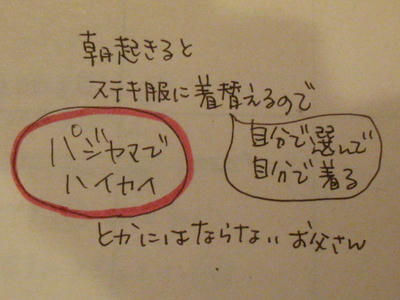 朝起きると
ステキ服に着替えるので
自分で選んで
自分で着る
パジャマで
ハイカイ
とかにはならないお父さん